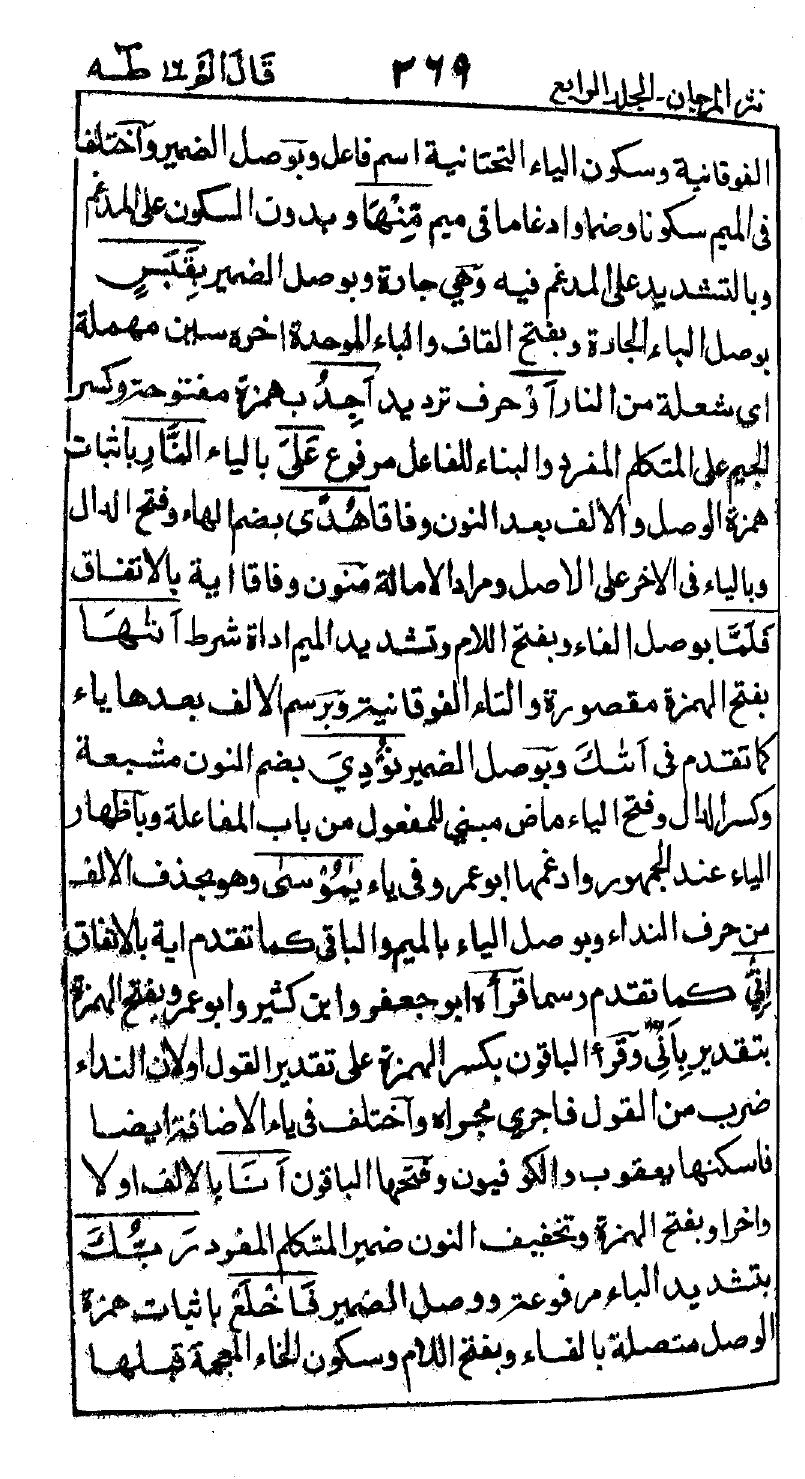 نثر المرجان - المجلد الرابع ٣٦٩ قال الم ١٦ طـه
الفوقانية وسكون الياء التحتانية اسم فاعل وبوصل الضمير وآختلفا
فى الميم سكونا وضما وادغاما فى ميم مِّنْهَا وبدون السكون على المدغم
وبالتشديد على المدغم فيه وهي جارة وبوصل الضمير بِقَبَسٍ
بوصل الباء الجارة وبفتح القاف والباء الموحدة اخره سين مهملة
اي شعلة من النار آوْ حرف ترديد آجِدُ بهمزة مفتوحة وكسر
الجيم على المتكلم المفرد والبناء للفاعل مرفوع عَلَىَ بالياء النَّارِ باثبات
همزة الوصل والالف بعد النون وفاقا هُدًى بضم الهاء وفتح الدال
وبالياء فى الاخر على الاصل ومراد الامالة منون وفاقا اية بالاتفاق
فَلَمَّا بوصل الفاء وبفتح اللام وتشديد الميم اداة شرط آتٰهَا
بفتح الهمزة مقصورة والتاء الفوقانية وبرسم الالف بعدها ياء
كما تقدم فى آتٰكَ وبوصل الضمير نُوْدِيَ بضم النون مشبعة
وكسر الدال وفتح الياء ماض مبني للمفعول من باب المفاعلة وباظهار
الياء عند الجمهور وادغمها ابو عمرو فى ياء يٰمُوْسٰى وهو بحذف الالف
من حرف النداء وبوصل الياء بالميم والباقى كما تقدم اية بالاتفاق
اِنِّىْ كما تقدم رسما قرأه ابو جعفر وابن كثير وابو عمرو بفتح الهمزة
بتقدير بِاَنِّى وقرأ الباقون بكسر الهمزة على تقدير القول او لان النداء
ضرب من القول فاجري مجراه وآختلف فى ياء الاضافة ايضا
فاسكنها يعقوب والكوفيون وفتحها الباقون آنَا بالالف اولا
واخرا وبفتح الهمزة وتخفيف النون ضمير المتكلم المفرد رَبُّكَ
بتشديد الباء مرفوعة ووصل الضمير فَاخْلَعْ باثبات همزة
الوصل متصلة بالفاء وبفتح اللام وسكون الخاء المعجمة قبلها